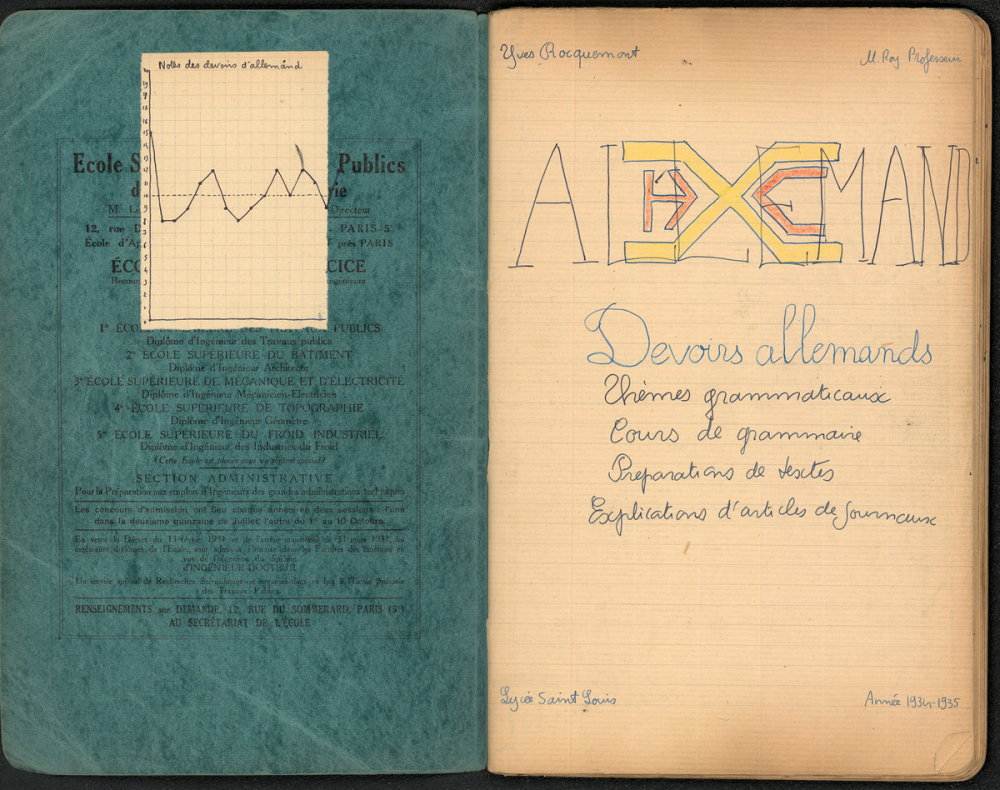 Notes des devoirs d'allemand
Ecole S Publics
d rie
M. Le Directeur
12, rue D - PARIS-5
École d'A près PARIS
ÉCO CICE
1° ÉCO PUBLICS
Diplôme d'Ingénieur des Travaux publics
2° ÉCOLE SUPÉRIEURE DU BATIMENT
Diplôme d'Ingénieur Architecte
3° ÉCOLE SUPÉRIEURE DE MÉCANIQUE ET D'ÉLECTRICITÉ
Diplôme d'Ingénieur Mécanicien-Électricien
4° ÉCOLE SUPÉRIEURE DE TOPOGRAPHIE
Diplôme d'Ingénieur Géomètre
5° ÉCOLE SUPÉRIEURE DU FROID INDUSTRIEL
Diplôme d'Ingénieur des Industries du Froid
(Cette École est placée sous un régime spécial)
SECTION ADMINISTRATIVE :
Pour la Préparation aux emplois d'Ingénieurs des grandes administrations techniques
Les concours d'admission ont lieu chaque année en deux sessions : l'une
dans la deuxième quinzaine de Juillet, l'autre du 1er au 10 Octobre.
d'INGÉNIEUR DOCTEUR
Un service spécial de Recherches Scientifiques est organisé dans ce but à l'École Spéciale
des Travaux Publics.
RENSEIGNEMENTS sur DEMANDE, 12, RUE DU SOMMERARD, PARIS (5e)
AU SECRÉTARIAT DE L'ÉCOLE
Yves Rocquemont
M. Roy Professeur
ALLEMAND
HX
Devoirs allemands
Thèmes grammaticaux
Cours de grammaire
Préparations de textes
Explications d'articles de Journaux
Lycée Saint Louis
Année 1934-1935